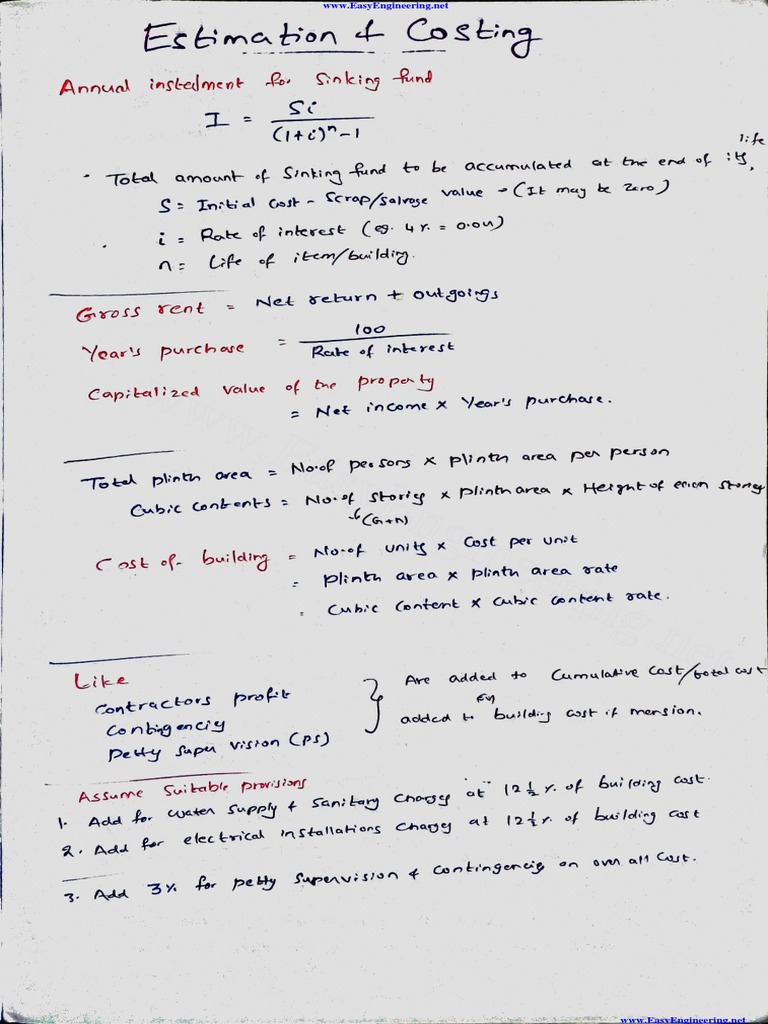 www.EasyEngineering.net
Estimation & Costing
Annual instalment for Sinking fund
I = Si / (1+i)^n - 1
• Total amount of Sinking fund to be accumulated at the end of its life,
S = Initial Cost - Scrap/salvage value → (It may be Zero)
i = Rate of interest (eg. 4 % = 0.04)
n = Life of item/building.
Gross rent = Net return + outgoings
Year's purchase = 100 / Rate of interest
Capitalized value of the property
= Net income × Year's purchase.
Total plinth area = No.of persons × plinth area per person
Cubic contents = No.of stories × plinth area × Height of each storey
↳(G+N)
Cost of building = No.of units × Cost per unit
= plinth area × plinth area rate
= Cubic Content × Cubic Content rate.
Like
Contractors profit
Contingenciy
Petty super vision (PS)
Are added to Cumulative Cost/total cost
added to building cost if mension.
Assume Suitable provisions
1. Add for water supply & Sanitary Charges at 12½ %. of building cost.
2. Add for electrical installations Charges at 12½ %. of building cost
3. Add 3% for petty supervision & Contingencies on over all Cost.
www.EasyEngineering.net